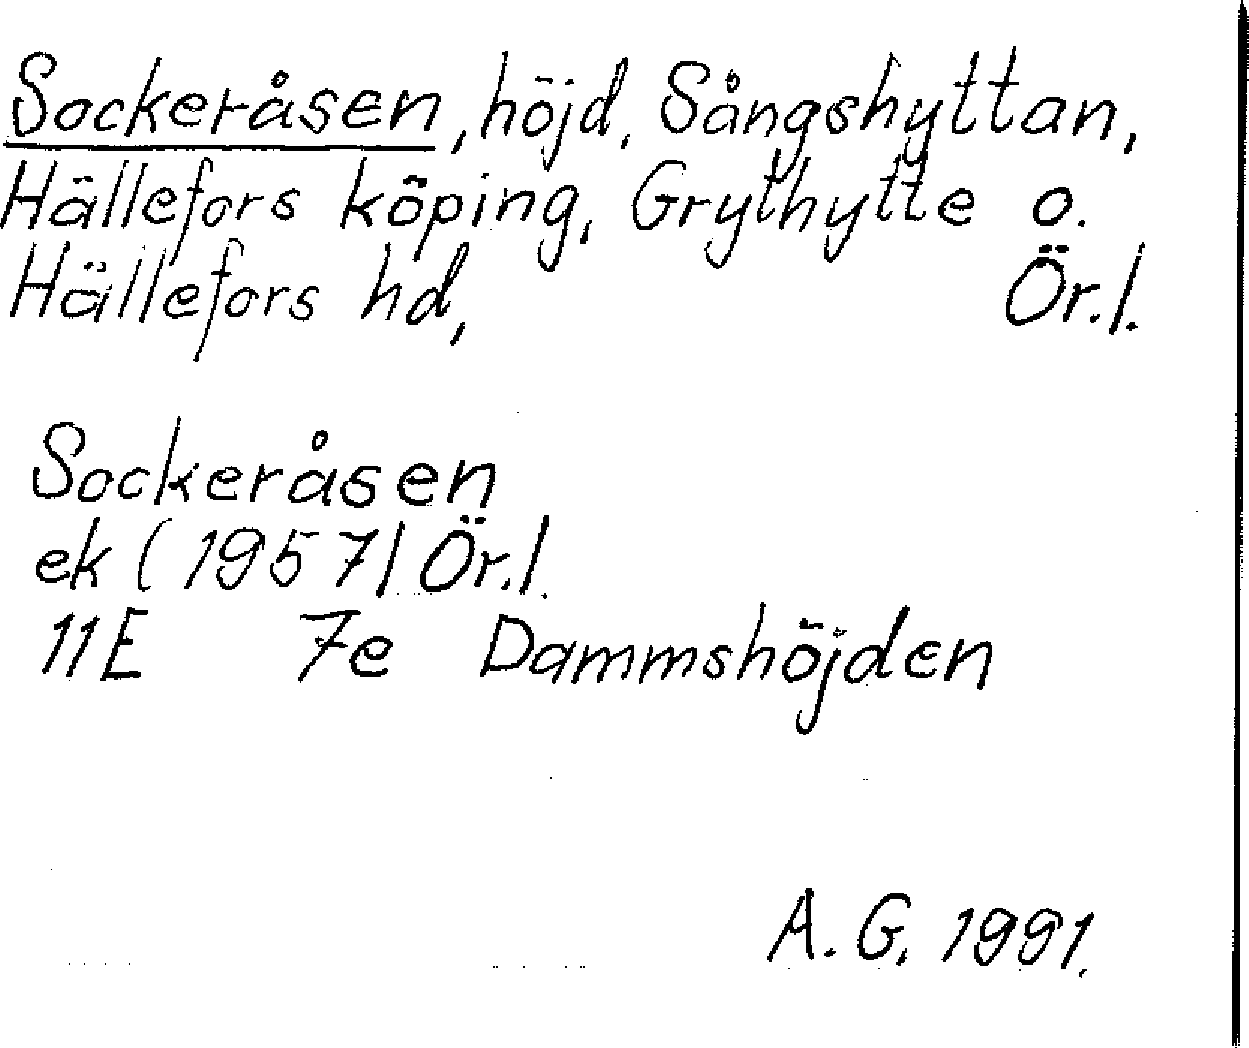 Sockeråsen, höjd, Sångshyttan,
Hällefors köping, Grythytte o.
Hällefors hd, Ör.l.
Sockeråsen
ek (1957) Ör.l.
11E 7e Dammshöjden
A. G. 1991.